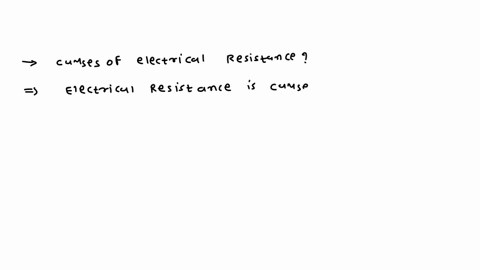 → causes of electrical Resistance?
⇒ Electrical Resistance is cause